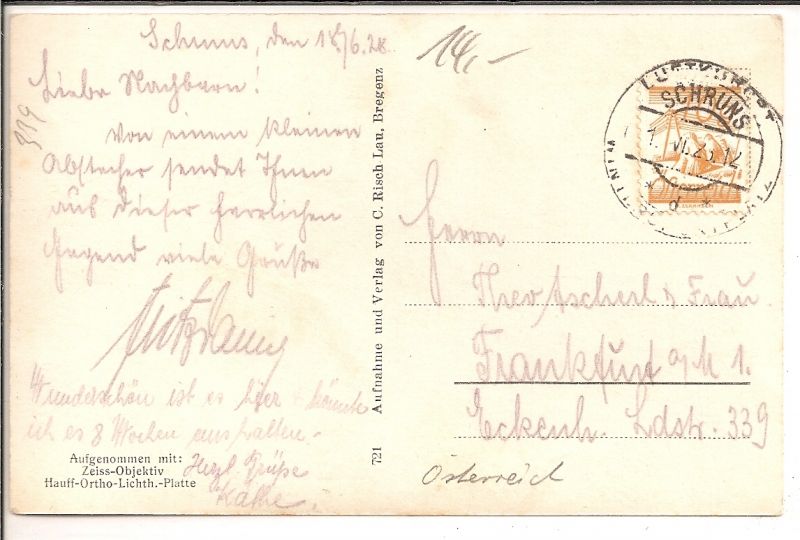 Schruns, den 18/6.28.
Liebe Nachbarn!
Von einem kleinen
Abstecher sendet Ihnen
aus dieser herrlichen
Gegend viele Grüße
Wunderschön ist es hier + könnte
ich es 8 Wochen aushalten.
Herzl. Grüße
Käthe.
319
Aufgenommen mit:
Zeiss-Objektiv
Hauff-Ortho-Lichth.-Platte
721 Aufnahme und Verlag von C. Risch Lau, Bregenz
14,-
LUFTKURORT
SCHRUNS
WINTERSPORTPLATZ
* d *
Herrn
Theo Ascherl & Frau
Frankfurt a/M 1.
Eckenh. Ldstr. 339
Österreich